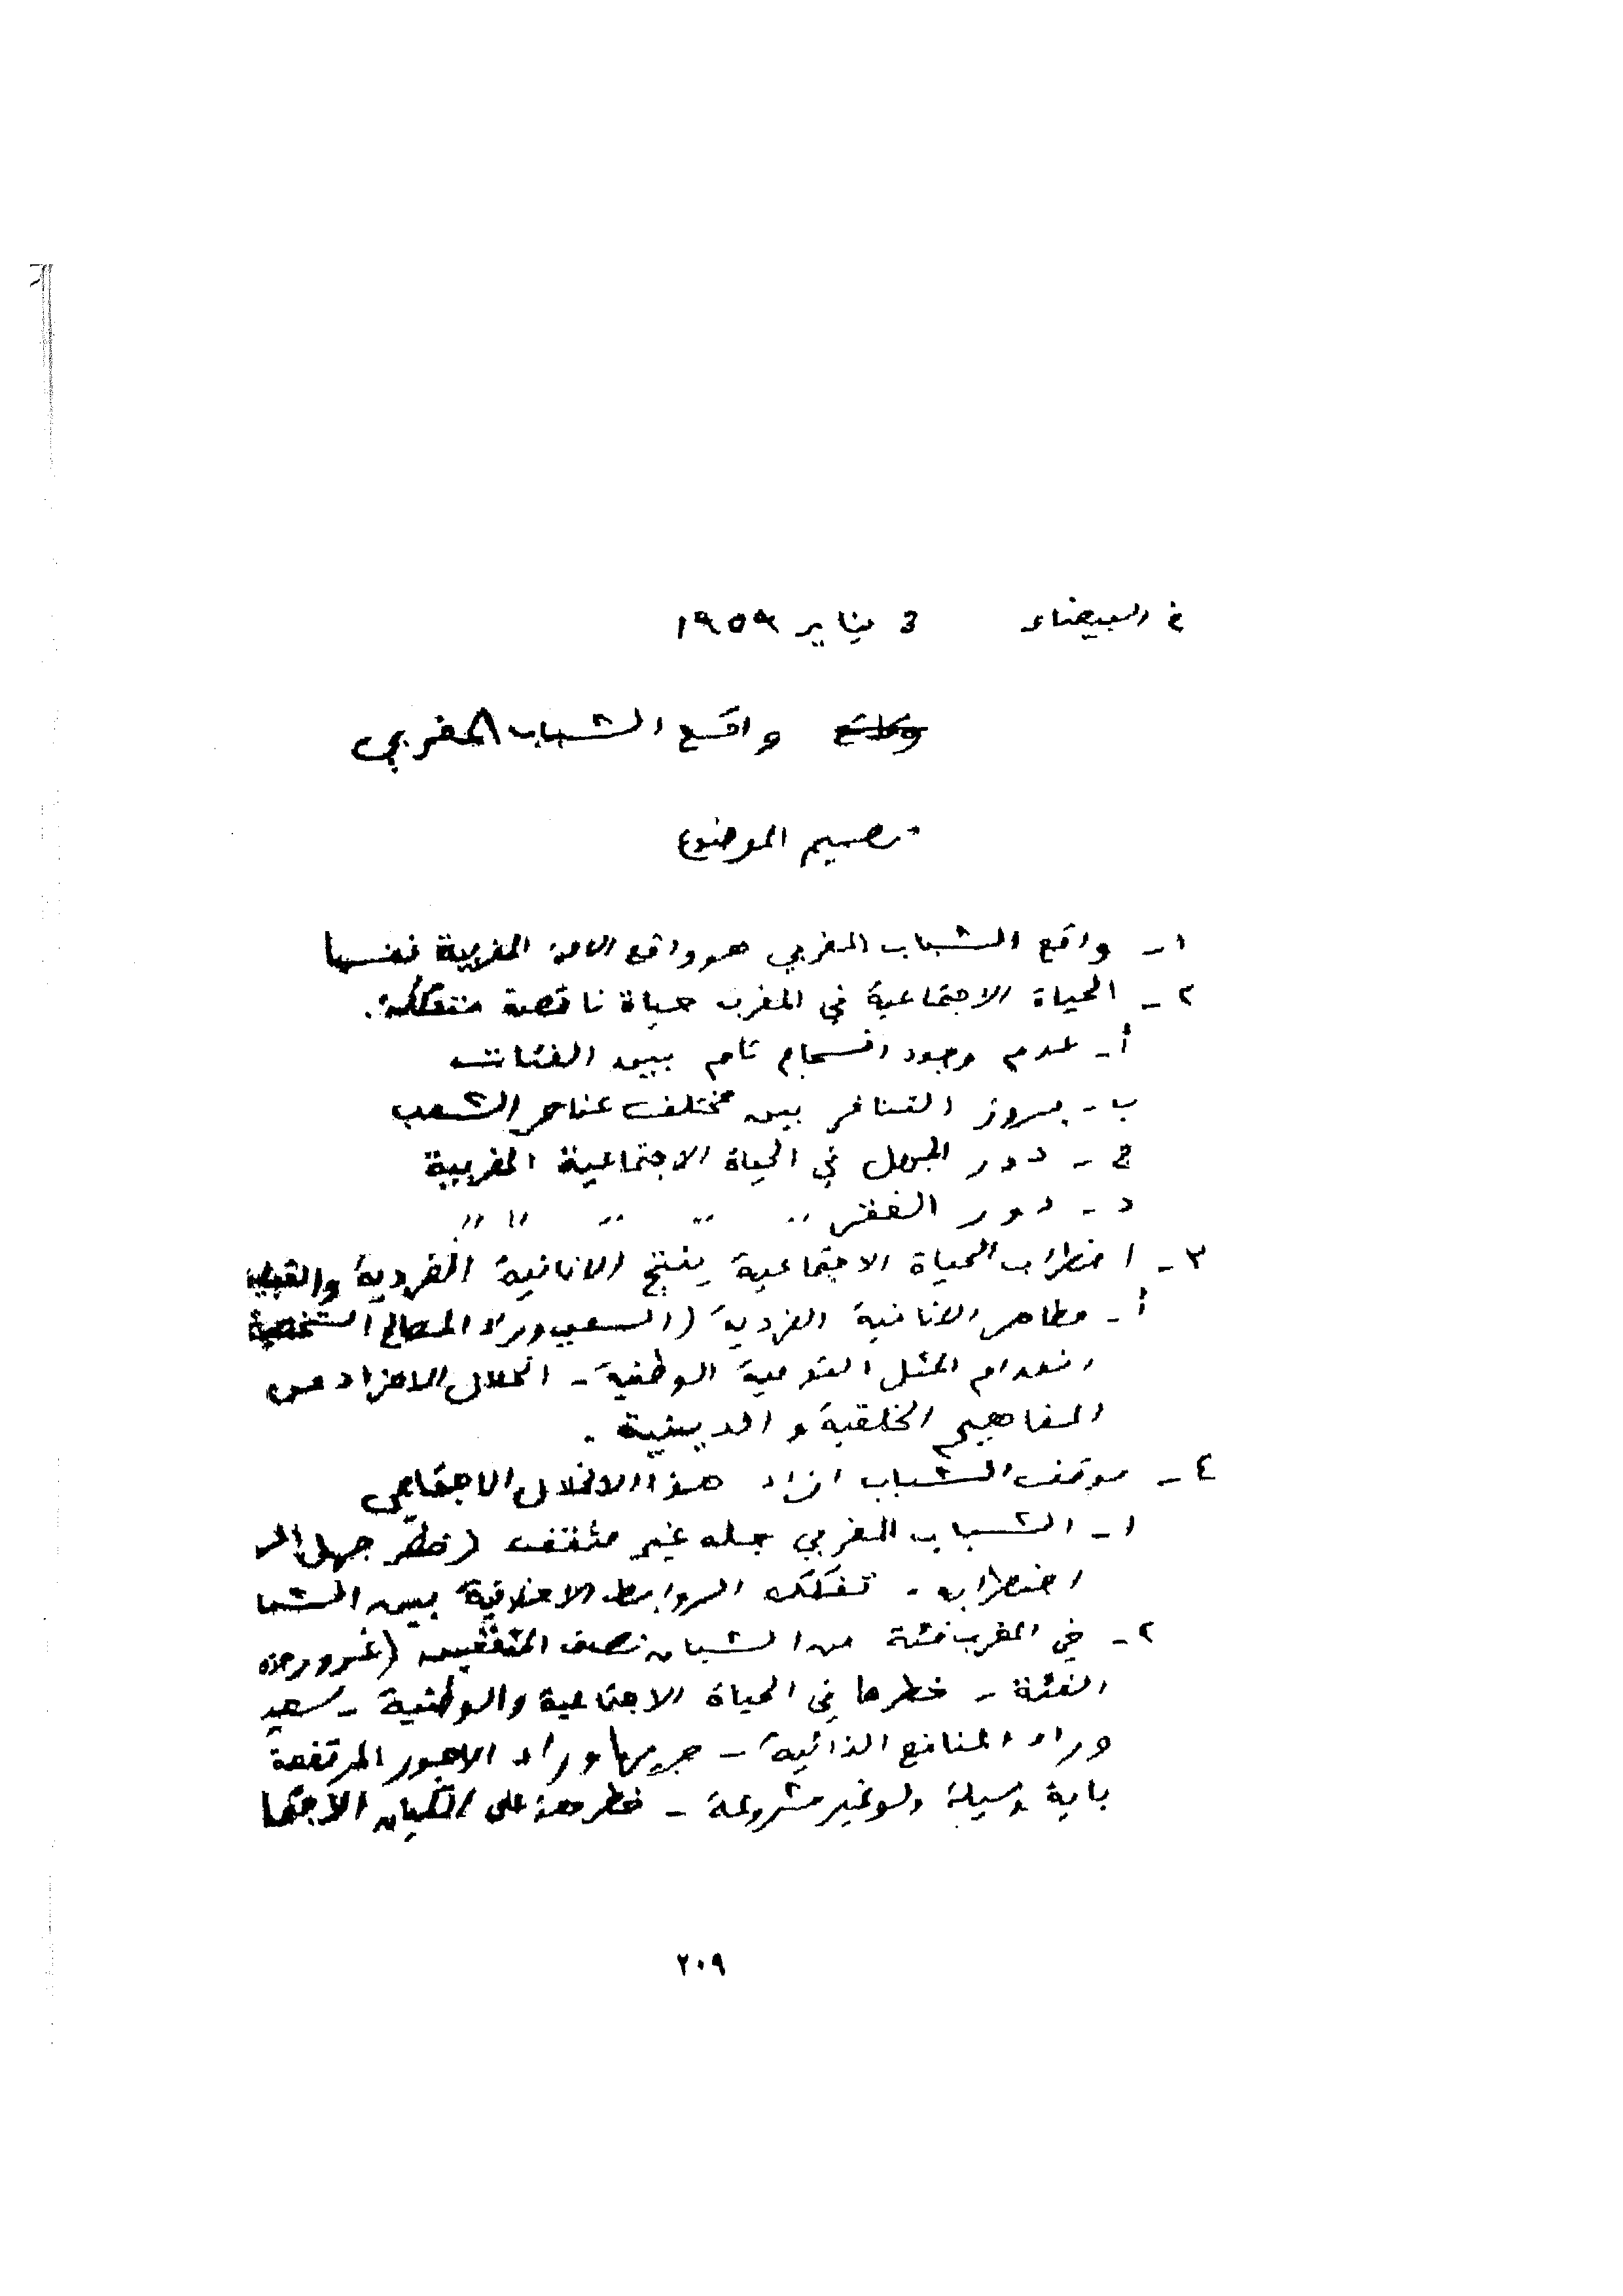 في البيضاء 3 يناير ١٩٥٩
واقع واقع الشباب المغربي
تصميم الموضوع
١- واقع الشباب المغربي هو واقع الامة المغربية نفسها
٢- الحياة الاجتماعية في المغرب حياة ناقصة متفككة.
أ- عدم وجود انسجام تام بين الفئات
ب- بروز التنافر بين مختلف عناصر الشعب
ج- دور الجهل في الحياة الاجتماعية المغربية
د- دور الفقر ,, ,, ,, ,, ,,
٣- اضطراب الحياة الاجتماعية ينتج الانانية الفردية والقبلية
أ- مظاهر الانانية الفردية (السعي وراء المصالح الشخصية
انعدام المثل القومية الوطنية - انحلال الافراد من
المفاهيم الخلقية والدينية.
٤- موقف الشباب ازاء هذا الانحلال الاجتماعي
١- الشباب المغربي جله غير مثقف (خطر جهل
اضطرابه - تفكك الروابط الاخلاقية بين الشبا
٢- في المغرب فئة من الشبان نصف المثقفين (غرور هذه
الفئة - خطرها في الحياة الاجتماعية والوطنية - سعيها
وراء المنافع الذاتية - جريها وراء الاجور المرتفعة
باية وسيلة ولو غير مشروعة - خطر هذه على الكيان الاجتما
٢٠٩